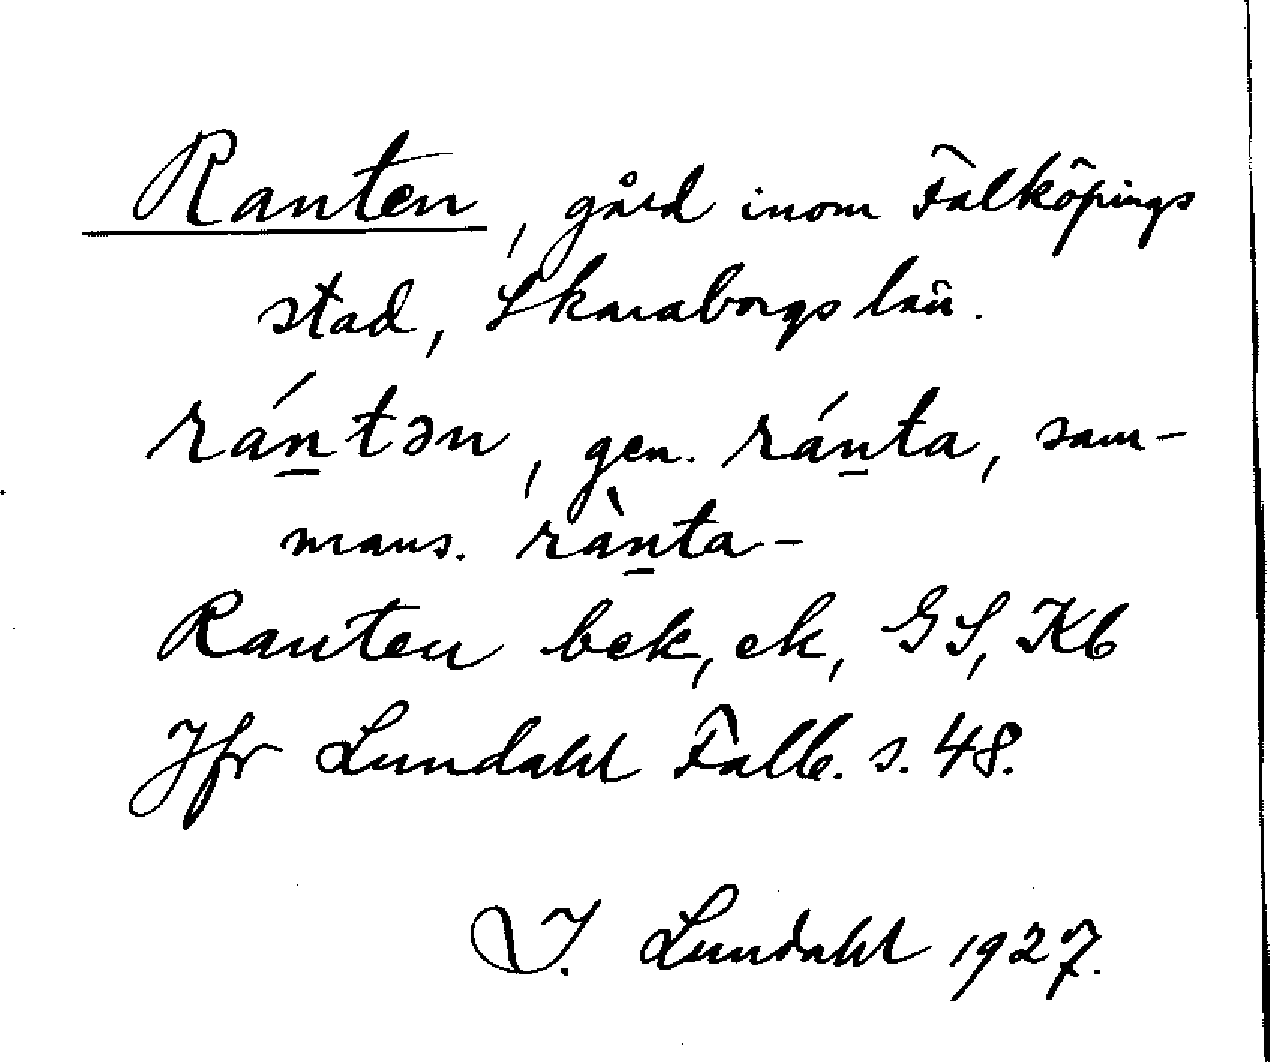 Ranten, gård inom Falköpings
stad, Skaraborgs län.
rán̲tən, gen. rán̲ta, sam-
mans. ràn̲ta-
Ranten bek, ek, GS, Kb
Jfr Lundahl Falb. s. 48.
I. Lundahl 1927.